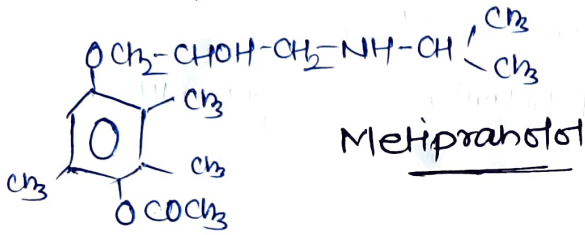 OCH2-CHOH-CH2-NH-CH
CH3
CH3
CH3
CH3
CH3
OCOCH3
Metipranolol